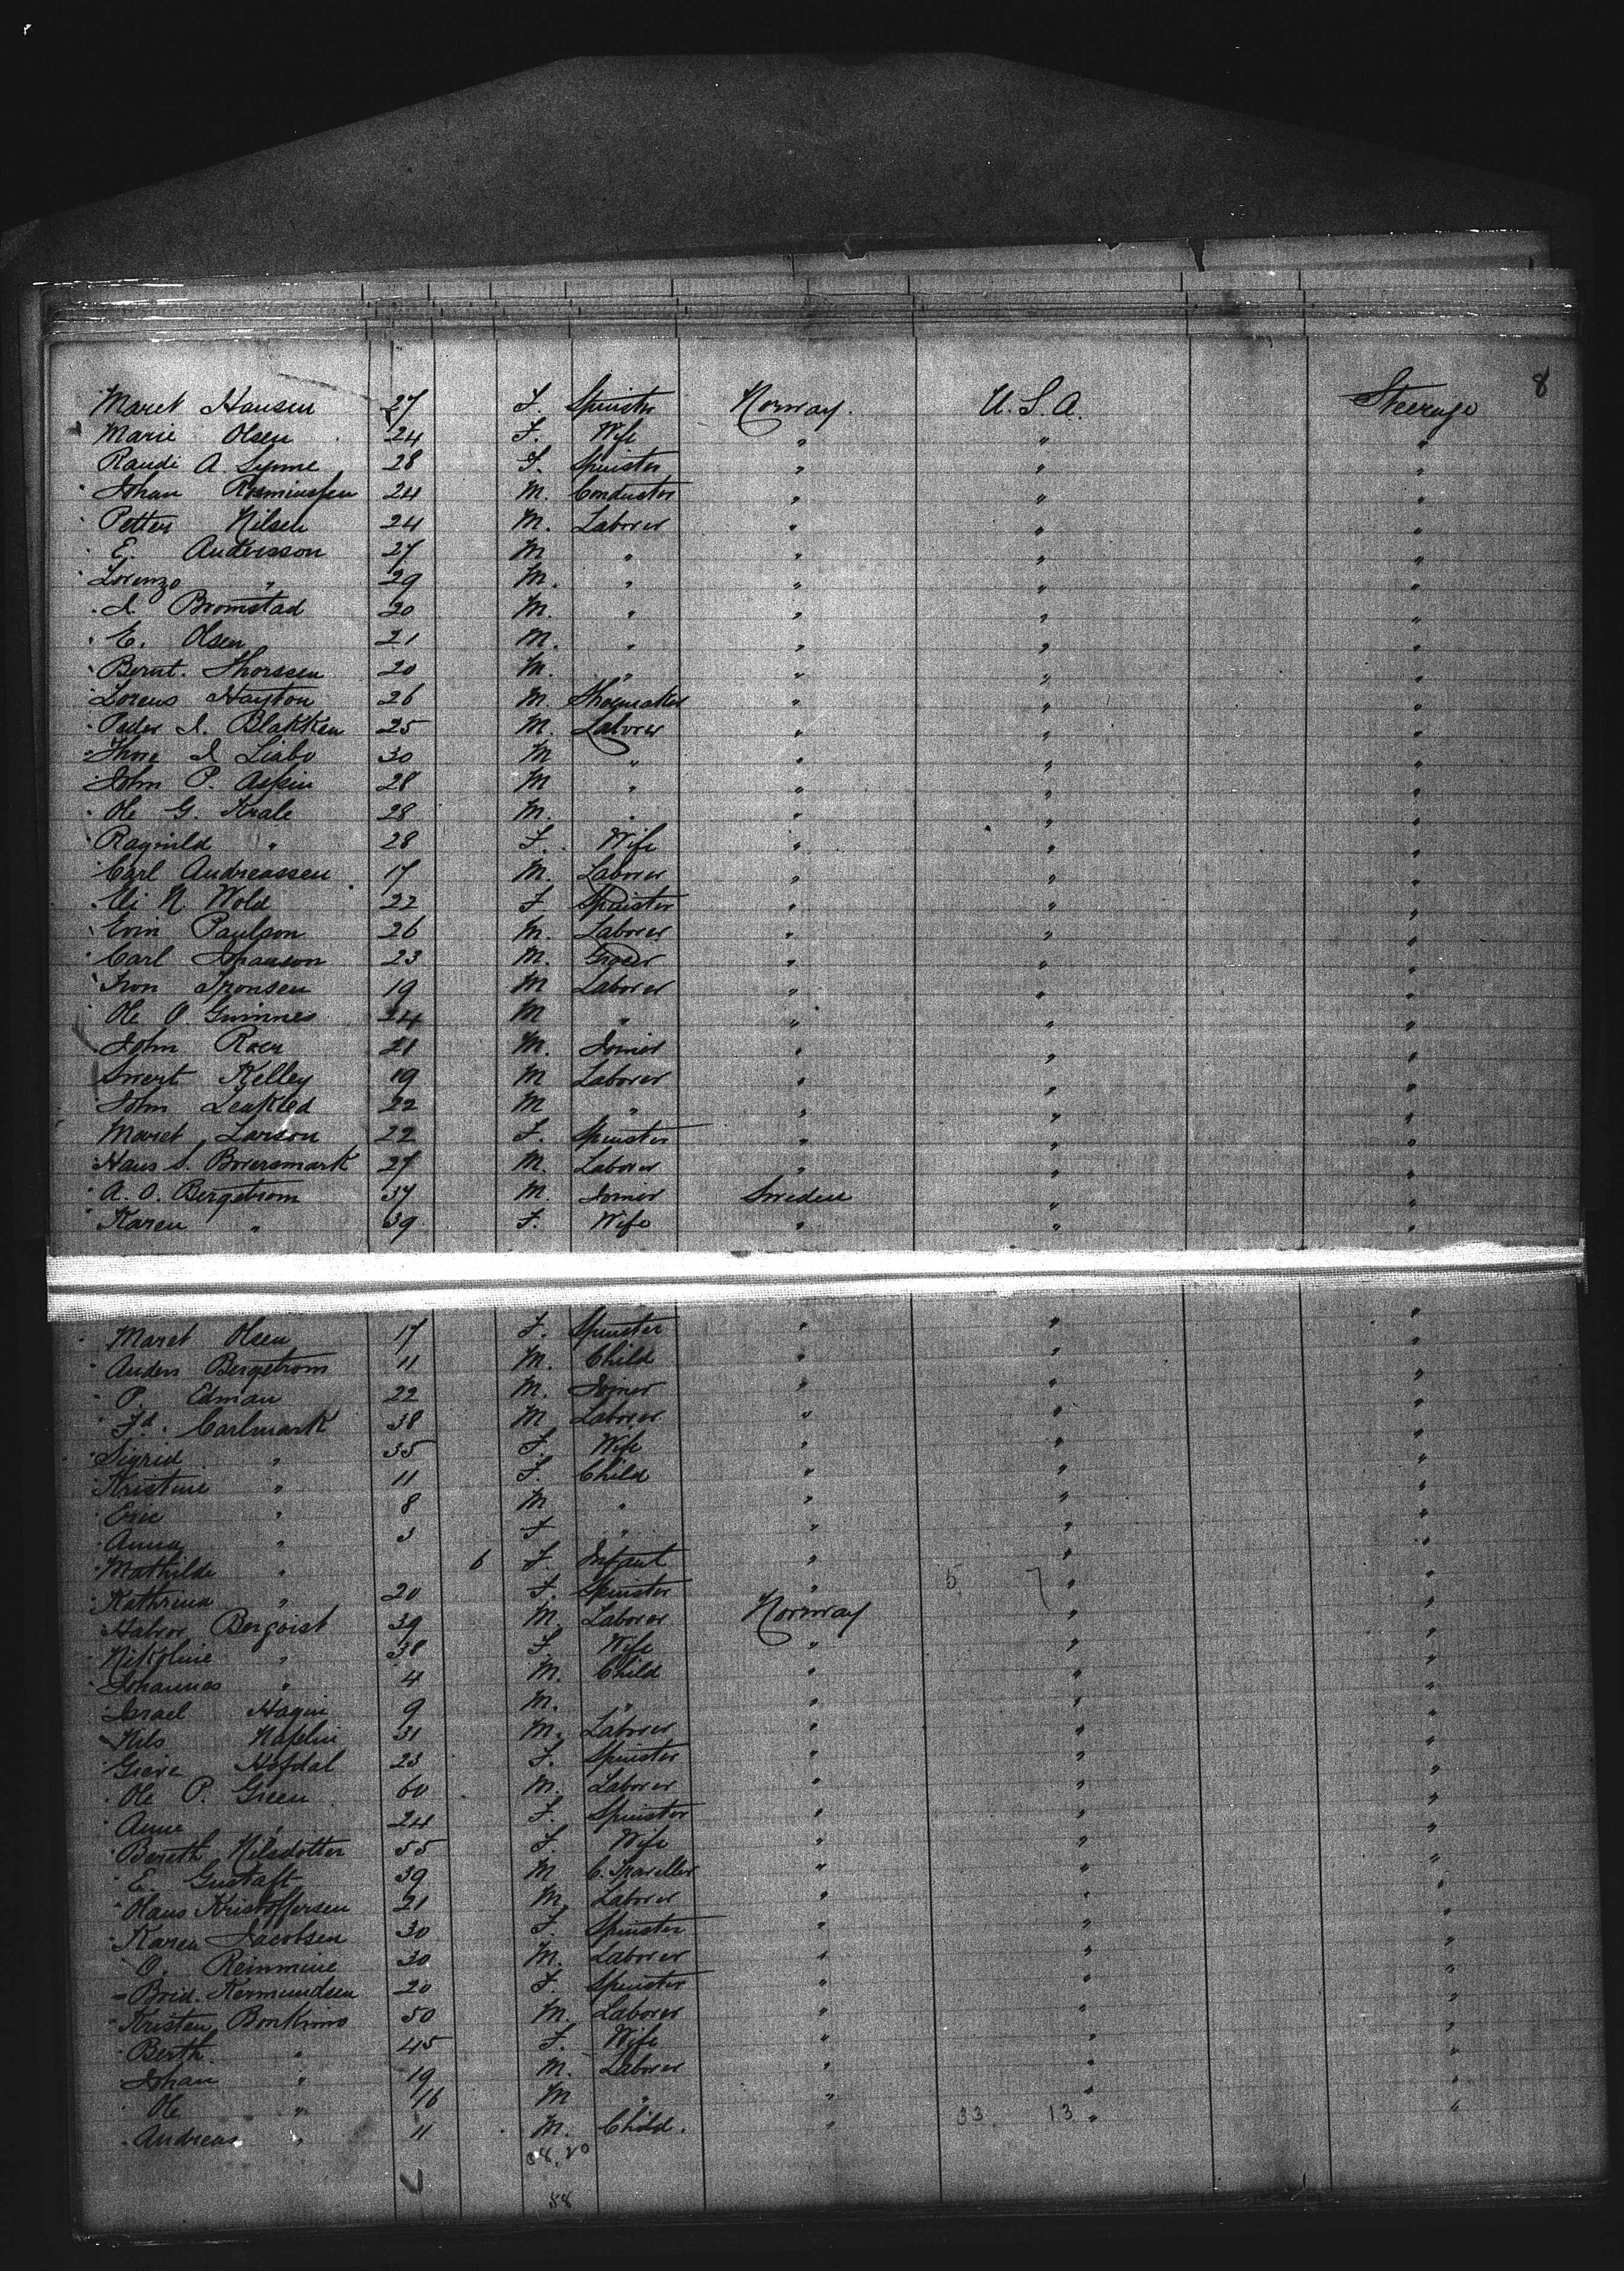 8
Maret Hansen 27 F. Spinster Norway. U.S.A. Steerage
Marie Olsen 24 F. Wife " " "
Raudi A. Lynne 28 F. Spinster " " "
Johan 24 M. Conductor " " "
Petter Nilsen 24 M. Laborer " " "
E. Andersson 27 M " " " "
Lorenzo " 29 M. " " " "
I. Bromstad 20 M. " " " "
E. Olsen 21 M. " " " "
Bernt. Thorssen 20 M. " " " "
Lorens Hayton 26 M. Shoemaker " " "
Peder I. Blakken 25 M. Laborer " " "
Thore I Liabo 30 M " " " "
John P. Aspin 28 M " " " "
Ole G. Krale 28 M. " " " "
Ragnild " 28 F. Wife " " "
Carl Andreassen 17 M. Laborer " " "
Eli N Wold 22 F Spinster " " "
Evin Paulson 26 M. Laborer " " "
Carl Johanson 23 M. Grocer " " "
Iron Tronsen 19 M Laborer " " "
Ole O. Guinnes 24 M " " " "
John Roen 21 M. Joiner " " "
Sivert Kelley 19 M Laborer " " "
John Leakled 22 M " " " "
Maret Larson 22 F. Spinster " " "
Hans S. Boversmark 27 M. Laborer " " "
A. O. Bergstrom 37 M. Joiner Sweden " "
Karen " 39 F. Wife " " "
Maret Olsen 17 F. Spinster " " "
Anders Bergstrom 11 M. Child " " "
P. Edman 22 M. Joiner " " "
Fd. Carlmark 38 M Laborer " " "
Sigrid " 35 F. Wife " " "
Kristine " 11 F. Child " " "
Eric " 8 M " " " "
Anna " 3 F " " " "
Mathilde " 6 F. Infant " " "
Kathrina " 20 F. Spinster " 5 7 " "
Halvor Bergvist 39 M. Laborer Norway " "
Nikoline " 38 F. Wife " " "
Johannes " 4 M. Child " " "
Israel Hagin 9 M. " " " "
Nils Haflin 31 M. Laborer " " "
Hofdal 23 F. Spinster " " "
Ole P. Green 60 M. Laborer " " "
Anne " 24 F. Spinster " " "
Bereth Nilsdotter 55 F. Wife " " "
E. Gustaft 39 M C. Traveller " " "
Hans Kristoffersen 21 M. Laborer " " "
Karen Jacobsen 30 F. Spinster " " "
O. Reinmine 30 M. Laborer " " "
Brid. Kermundsen 20 F. Spinster " " "
Kristen Bonkimo 50 M. Laborer " " "
Berth. " 45 F. Wife " " "
Johan " 19 M. Laborer " " "
Ole " 16 M " " " "
Andreas " 11 M. Child. " 33 13 "
88